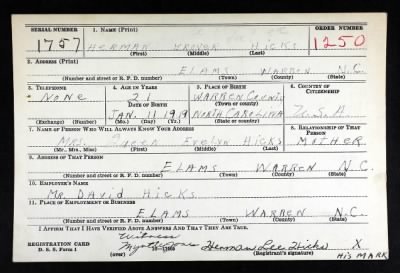 SERIAL NUMBER 1. NAME (Print) ORDER NUMBER
1757 HERMAN HICKS 1250
(First) (Middle) (Last)
2. ADDRESS (Print)
ELAMS WARREN N.C.
(Number and street or R. F. D. number) (Town) (County) (State)
3. TELEPHONE 4. AGE IN YEARS 5. PLACE OF BIRTH 6. COUNTRY OF CITIZENSHIP
NONE 21 WARREN COUNTY
DATE OF BIRTH (Town or county)
JAN. 1 1919 NORTH CAROLINA
(Exchange) (Number) (Mo.) (Day) (Yr.) (State or country)
7. NAME OF PERSON WHO WILL ALWAYS KNOW YOUR ADDRESS 8. RELATIONSHIP OF THAT PERSON
MRS. Evelyn HICKS MOTHER
(Mr., Mrs., Miss) (First) (Middle) (Last)
9. ADDRESS OF THAT PERSON
ELAMS WARREN N.C.
(Number and street or R. F. D. number) (Town) (County) (State)
10. EMPLOYER'S NAME
MR. DAVID HICKS
11. PLACE OF EMPLOYMENT OR BUSINESS
ELAMS WARREN N.C.
(Number and street or R. F. D. number) (Town) (County) (State)
I AFFIRM THAT I HAVE VERIFIED ABOVE ANSWERS AND THAT THEY ARE TRUE.
Witness
Herman Lee Hicks X
REGISTRATION CARD
D. S. S. Form 1 (over) Registrant's signature HIS MARK